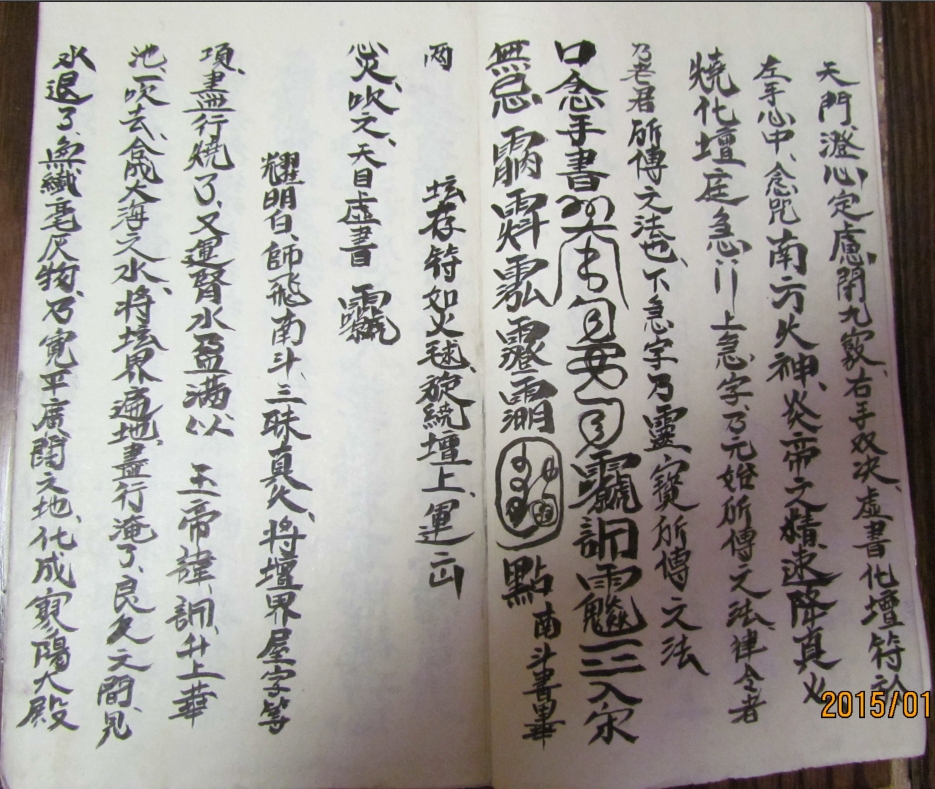 天門、澄心定慮、開九竅、右手双决、虛書化壇符於
左手心中、念咒南方火神、炎帝之精、速降真火
燒化壇庭急〻 上急字、乃元始所傳之法、律令者
乃老君所傳之法也、下急字乃靈寶所傳之法
口念手書
無忌 點 南斗書畢
坛存符如火毬、旋繞壇上、運
两
炎、吹之、天目虛書
耀明白、師飛南斗、三昧真火、将壇界屋宇等
項、盡行燒了、又運腎水盈滿以 玉帝諱 訶、升上華
池、一吹去、合成大海之水、将坛界遍地、盡行淹了、良久之間、見
水退了、無纖毫灰物、乃寬平廣闊之地、化成寥陽大殿
2015/01